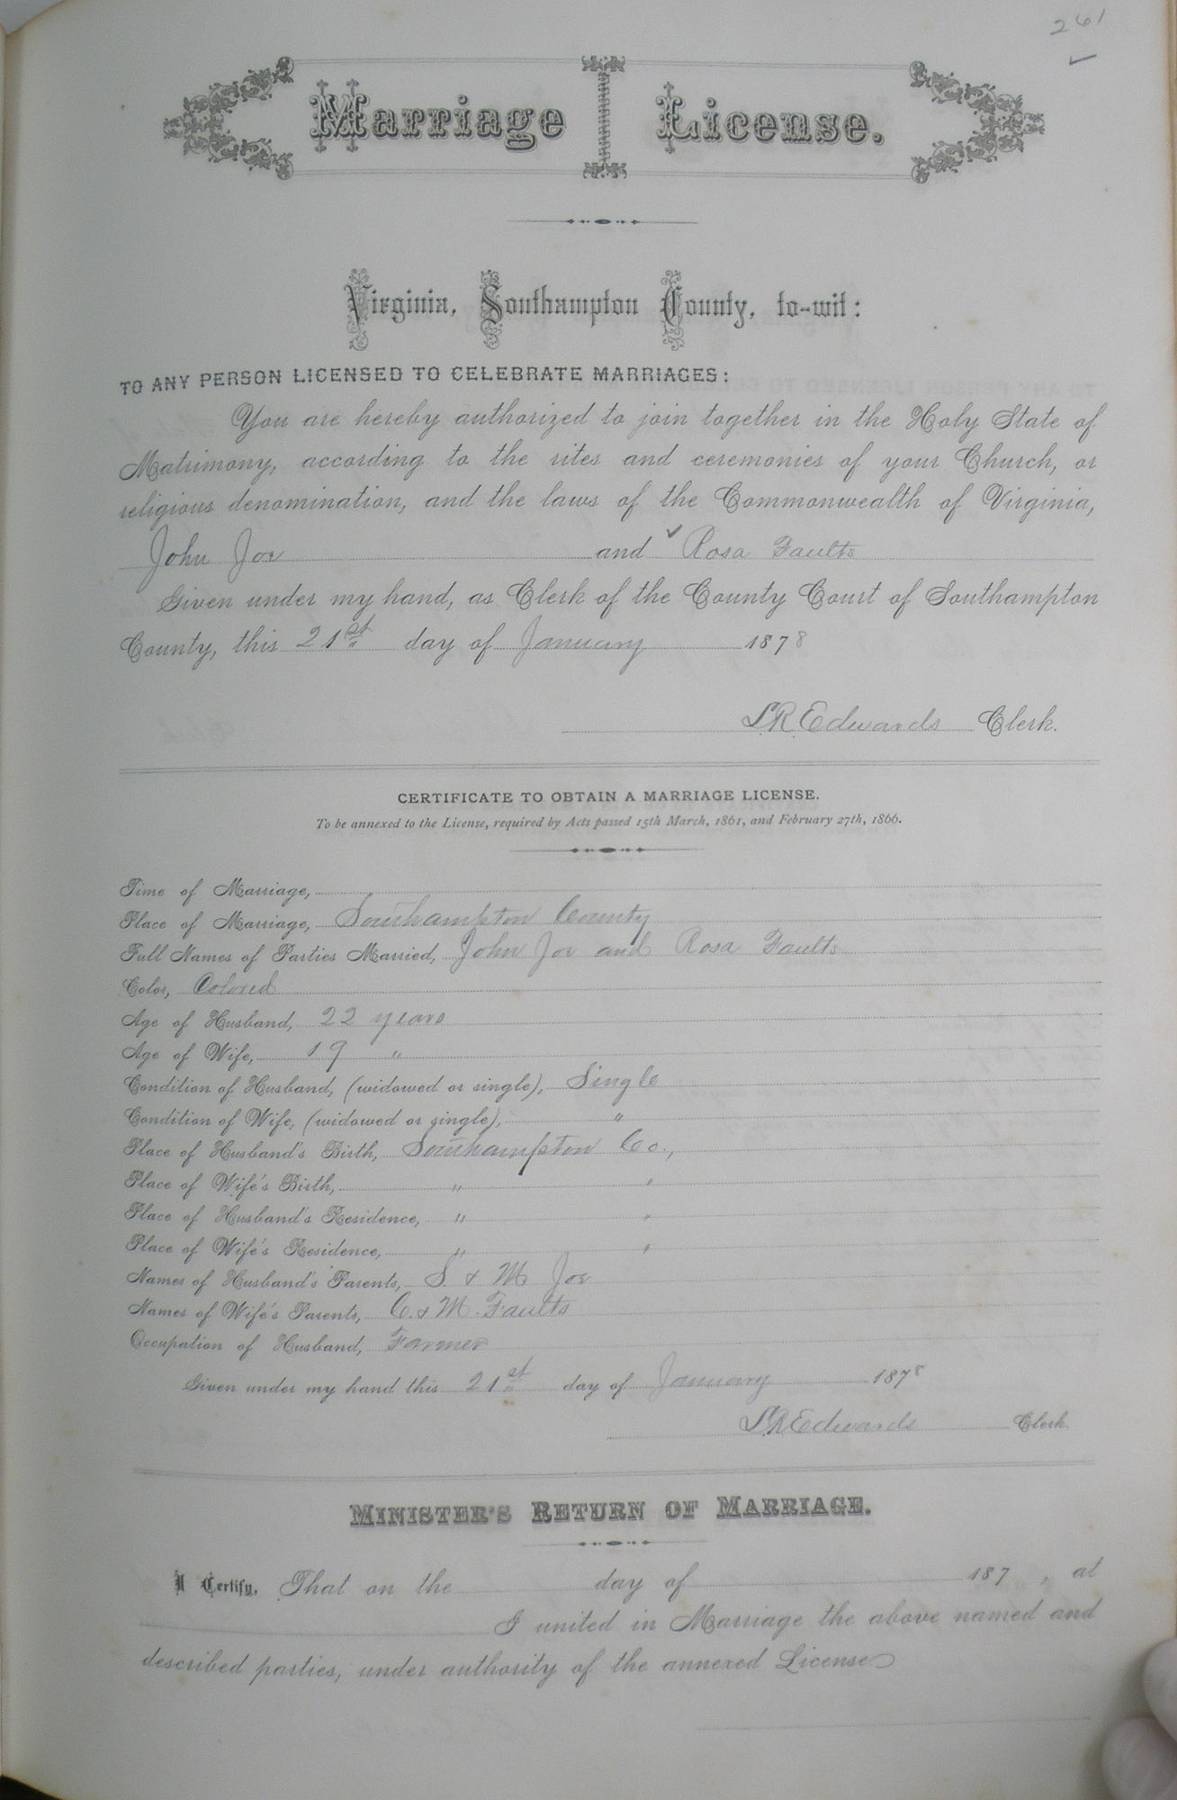 261
Marriage License.
Virginia, Southampton County, to-wit:
TO ANY PERSON LICENSED TO CELEBRATE MARRIAGES:
You are hereby authorized to join together in the Holy State of
Matrimony, according to the rites and ceremonies of your Church, or
religious denomination, and the laws of the Commonwealth of Virginia,
John Joe and ✓ Rosa Faults
Given under my hand, as Clerk of the County Court of Southampton
County, this 21st day of January 1878
L.R. Edwards Clerk.
CERTIFICATE TO OBTAIN A MARRIAGE LICENSE.
To be annexed to the License, required by Acts passed 15th March, 1861, and February 27th, 1866.
Time of Marriage,
Place of Marriage, Southampton County
Full Names of Parties Married, John Joe and Rosa Faults
Color, Colored
Age of Husband, 22 years
Age of Wife, 19 "
Condition of Husband, (widowed or single), Single
Condition of Wife, (widowed or single), "
Place of Husband's Birth, Southampton Co.,
Place of Wife's Birth, " "
Place of Husband's Residence, " "
Place of Wife's Residence, " "
Names of Husband's Parents, S. & M Joe
Names of Wife's Parents, C. & M. Faults
Occupation of Husband, Farmer
Given under my hand this 21st day of January 1878
L.R. Edwards Clerk
MINISTER'S RETURN OF MARRIAGE.
I Certify, That on the day of 187 , at
I united in Marriage the above named and
described parties, under authority of the annexed License